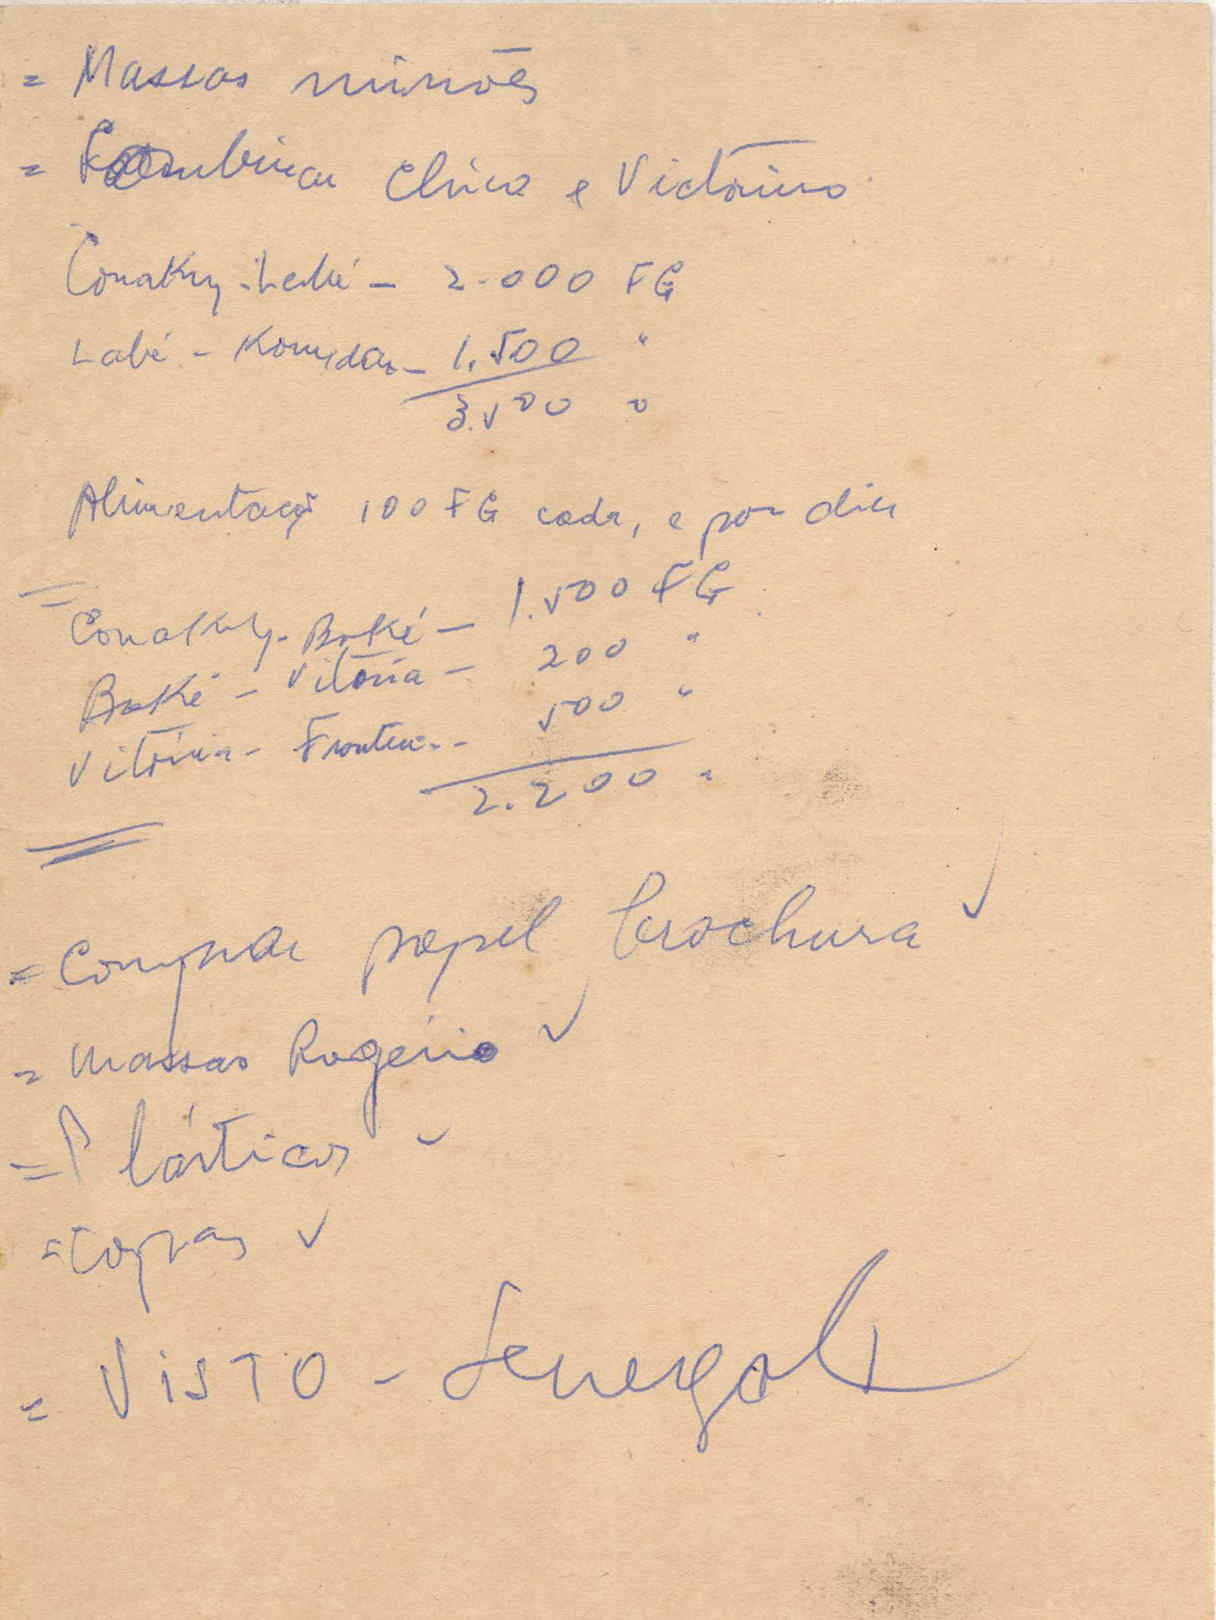 = Massas
= Combinar Chico e Victorino
Conakry - Labé - 2.000 FG
Labé - Koundara - 1.500 "
3.500 "
Alimentação 100 FG cada, e por dia
=
Conakry - Boké - 1.500 FG
Boké - Vitória - 200 "
Vitória - Fronteira - 500 "
2.200 "
= Comprar papel brochura ✓
= Massas Rogério ✓
= Plásticos ✓
= Capas ✓
= VISTO - Senegal